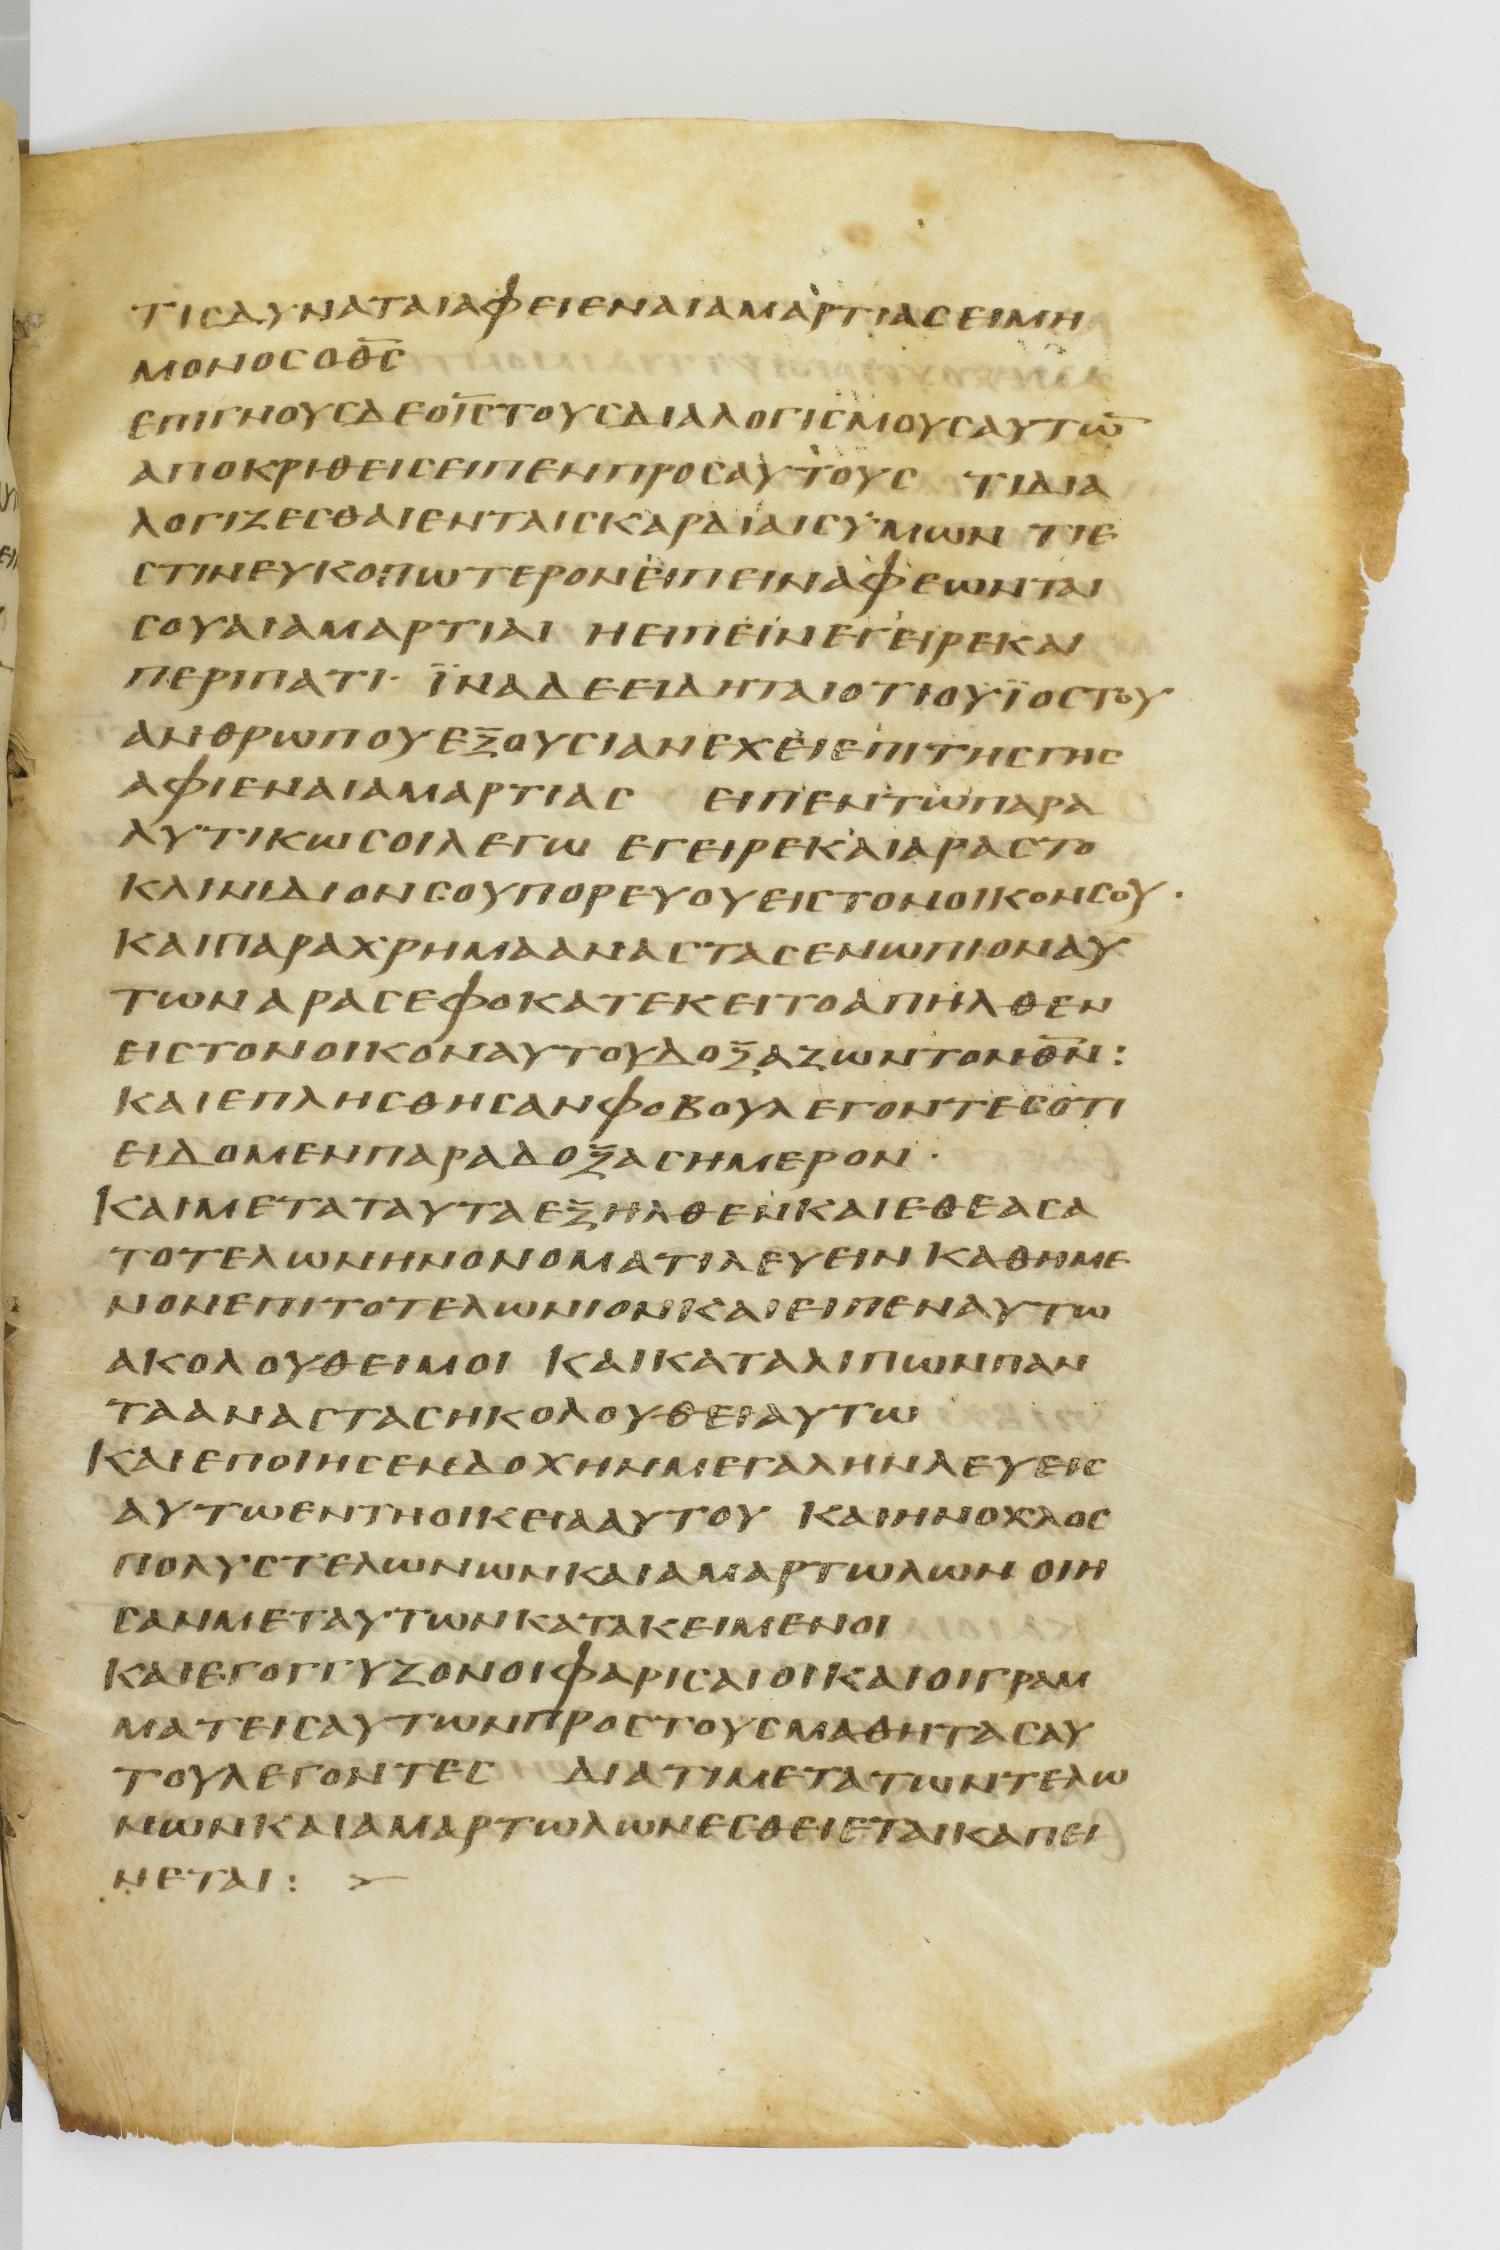 ΤΙϹΔΥΝΑΤΑΙΑΦΕΙΕΝΑΙΑΜΑΡΤΙΑϹΕΙΜΗ
ΜΟΝΟϹΟΘ̅Ϲ̅
ΕΠΙΓΝΟΥϹΔΕΟΙ̅Ϲ̅ΤΟΥϹΔΙΑΛΟΓΙϹΜΟΥϹΑΥΤΩ̅
ΑΠΟΚΡΙΘΕΙϹΕΙΠΕΝΠΡΟϹΑΥΤΟΥϹ ΤΙΔΙΑ
ΛΟΓΙΖΕϹΘΑΙΕΝΤΑΙϹΚΑΡΔΙΑΙϹΥΜΩΝ ΤΙΕ
ϹΤΙΝΕΥΚΟΠΩΤΕΡΟΝΕΙΠΕΙΝΑΦΕΩΝΤΑΙ
ϹΟΥΑΙΑΜΑΡΤΙΑΙ ΗΕΙΠΕΙΝΕΓΕΙΡΕΚΑΙ
ΠΕΡΙΠΑΤΙ· ΪΝΑΔΕΕΙΔΗΤΑΙΟΤΙΟΥΪΟϹΤΟΥ
ΑΝΘΡΩΠΟΥΕΞΟΥϹΙΑΝΕΧΕΙΕΠΙΤΗϹΓΗϹ
ΑΦΙΕΝΑΙΑΜΑΡΤΙΑϹ ΕΙΠΕΝΤΩΠΑΡΑ
ΛΥΤΙΚΩϹΟΙΛΕΓΩ ΕΓΕΙΡΕΚΑΙΑΡΑϹΤΟ
ΚΛΙΝΙΔΙΟΝϹΟΥΠΟΡΕΥΟΥΕΙϹΤΟΝΟΙΚΟΝϹΟΥ·
ΚΑΙΠΑΡΑΧΡΗΜΑΑΝΑϹΤΑϹΕΝΩΠΙΟΝΑΥ
ΤΩΝΑΡΑϹΕΦΟΚΑΤΕΚΕΙΤΟΑΠΗΛΘΕΝ
ΕΙϹΤΟΝΟΙΚΟΝΑΥΤΟΥΔΟΞΑΖΩΝΤΟΝΘ̅Ν̅:
ΚΑΙΕΠΛΗϹΘΗϹΑΝΦΟΒΟΥΛΕΓΟΝΤΕϹΟΤΙ
ΕΙΔΟΜΕΝΠΑΡΑΔΟΞΑϹΗΜΕΡΟΝ·
ΚΑΙΜΕΤΑΤΑΥΤΑΕΞΗΛΘΕΝΚΑΙΕΘΕΑϹΑ
ΤΟΤΕΛΩΝΗΝΟΝΟΜΑΤΙΛΕΥΕΙΝΚΑΘΗΜΕ
ΝΟΝΕΠΙΤΟΤΕΛΩΝΙΟΝΚΑΙΕΙΠΕΝΑΥΤΩ
ΑΚΟΛΟΥΘΕΙΜΟΙ ΚΑΙΚΑΤΑΛΙΠΩΝΠΑΝ
ΤΑΑΝΑϹΤΑϹΗΚΟΛΟΥΘΕΙΑΥΤΩ
ΚΑΙΕΠΟΙΗϹΕΝΔΟΧΗΝΜΕΓΑΛΗΝΛΕΥΕΙϹ
ΑΥΤΩΕΝΤΗΟΙΚΕΙΑΑΥΤΟΥ ΚΑΙΗΝΟΧΛΟϹ
ΠΟΛΥϹΤΕΛΩΝΩΝΚΑΙΑΜΑΡΤΩΛΩΝ ΟΙΗ
ϹΑΝΜΕΤΑΥΤΩΝΚΑΤΑΚΕΙΜΕΝΟΙ
ΚΑΙΕΓΟΓΓΥΖΟΝΟΙΦΑΡΙϹΑΙΟΙΚΑΙΟΙΓΡΑΜ
ΜΑΤΕΙϹΑΥΤΩΝΠΡΟϹΤΟΥϹΜΑΘΗΤΑϹΑΥ
ΤΟΥΛΕΓΟΝΤΕϹ ΔΙΑΤΙΜΕΤΑΤΩΝΤΕΛΩ
ΝΩΝΚΑΙΑΜΑΡΤΩΛΩΝΕϹΘΕΙΕΤΑΙΚΑΠΕΙ
ΝΕΤΑΙ: